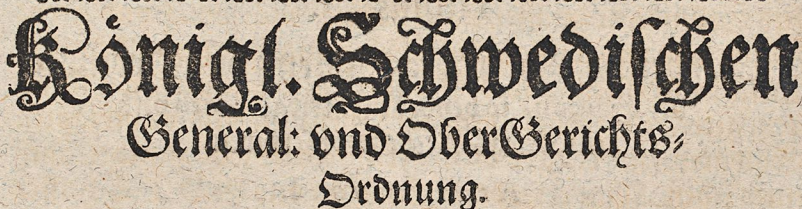 Königl. Schwedischen
General: vnd OberGerichts-
Ordnung.